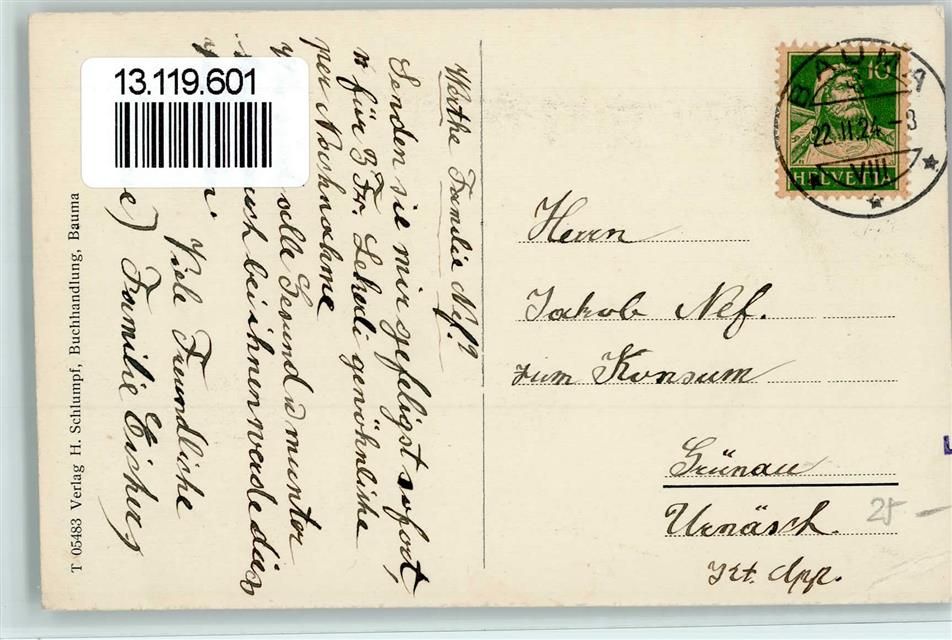 13.119.601
Werthe Familie Nef!
Senden sie mir gefeligst sofort,
für 3 Fr. Lekerli gewöhnliche
per Nochnahme
volle Gesund u munter
bei ihnen
Viele Freundliche
Familie
T 05483 Verlag H. Schlumpf, Buchhandlung, Bauma
10
HELVETIA
BAUMA
22.II.24.-8
VIII 7
Herrn
Jakob Nef.
zum Konsum
Grünau
Urnäsch.
Kt. App.
25 -